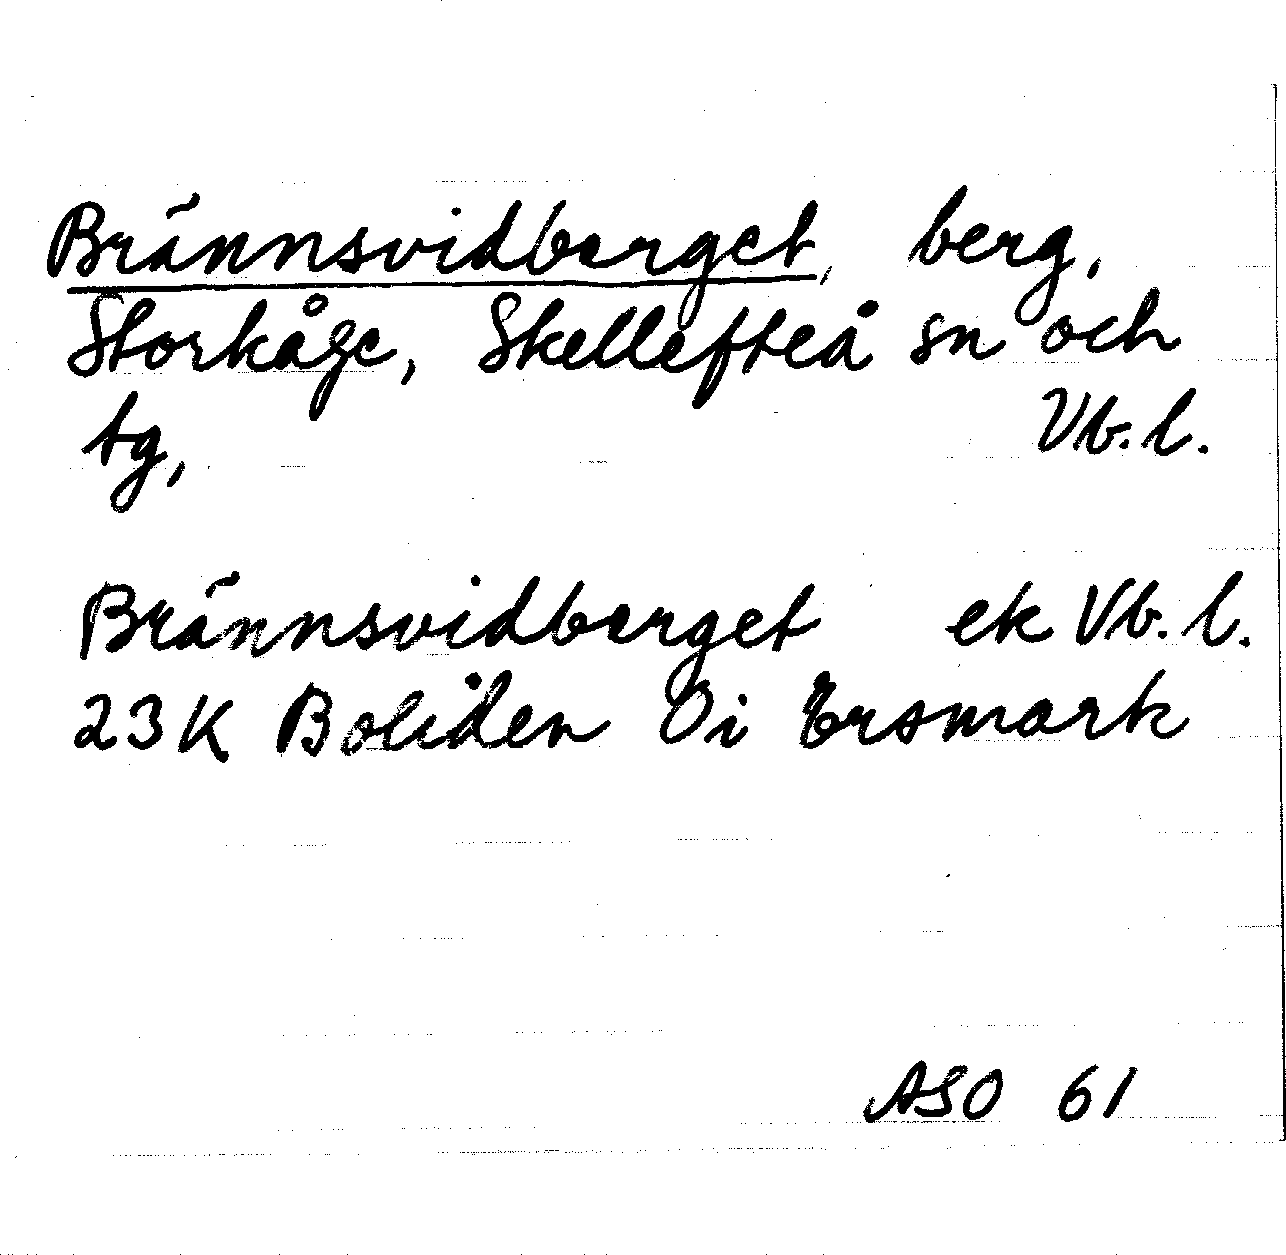 Brännsvidberget, berg,
Storkåge, Skellefteå sn och
tg, Vb. l.
Brännsvidberget ek Vb. l.
23K Boliden 0i Ersmark
ASO 61